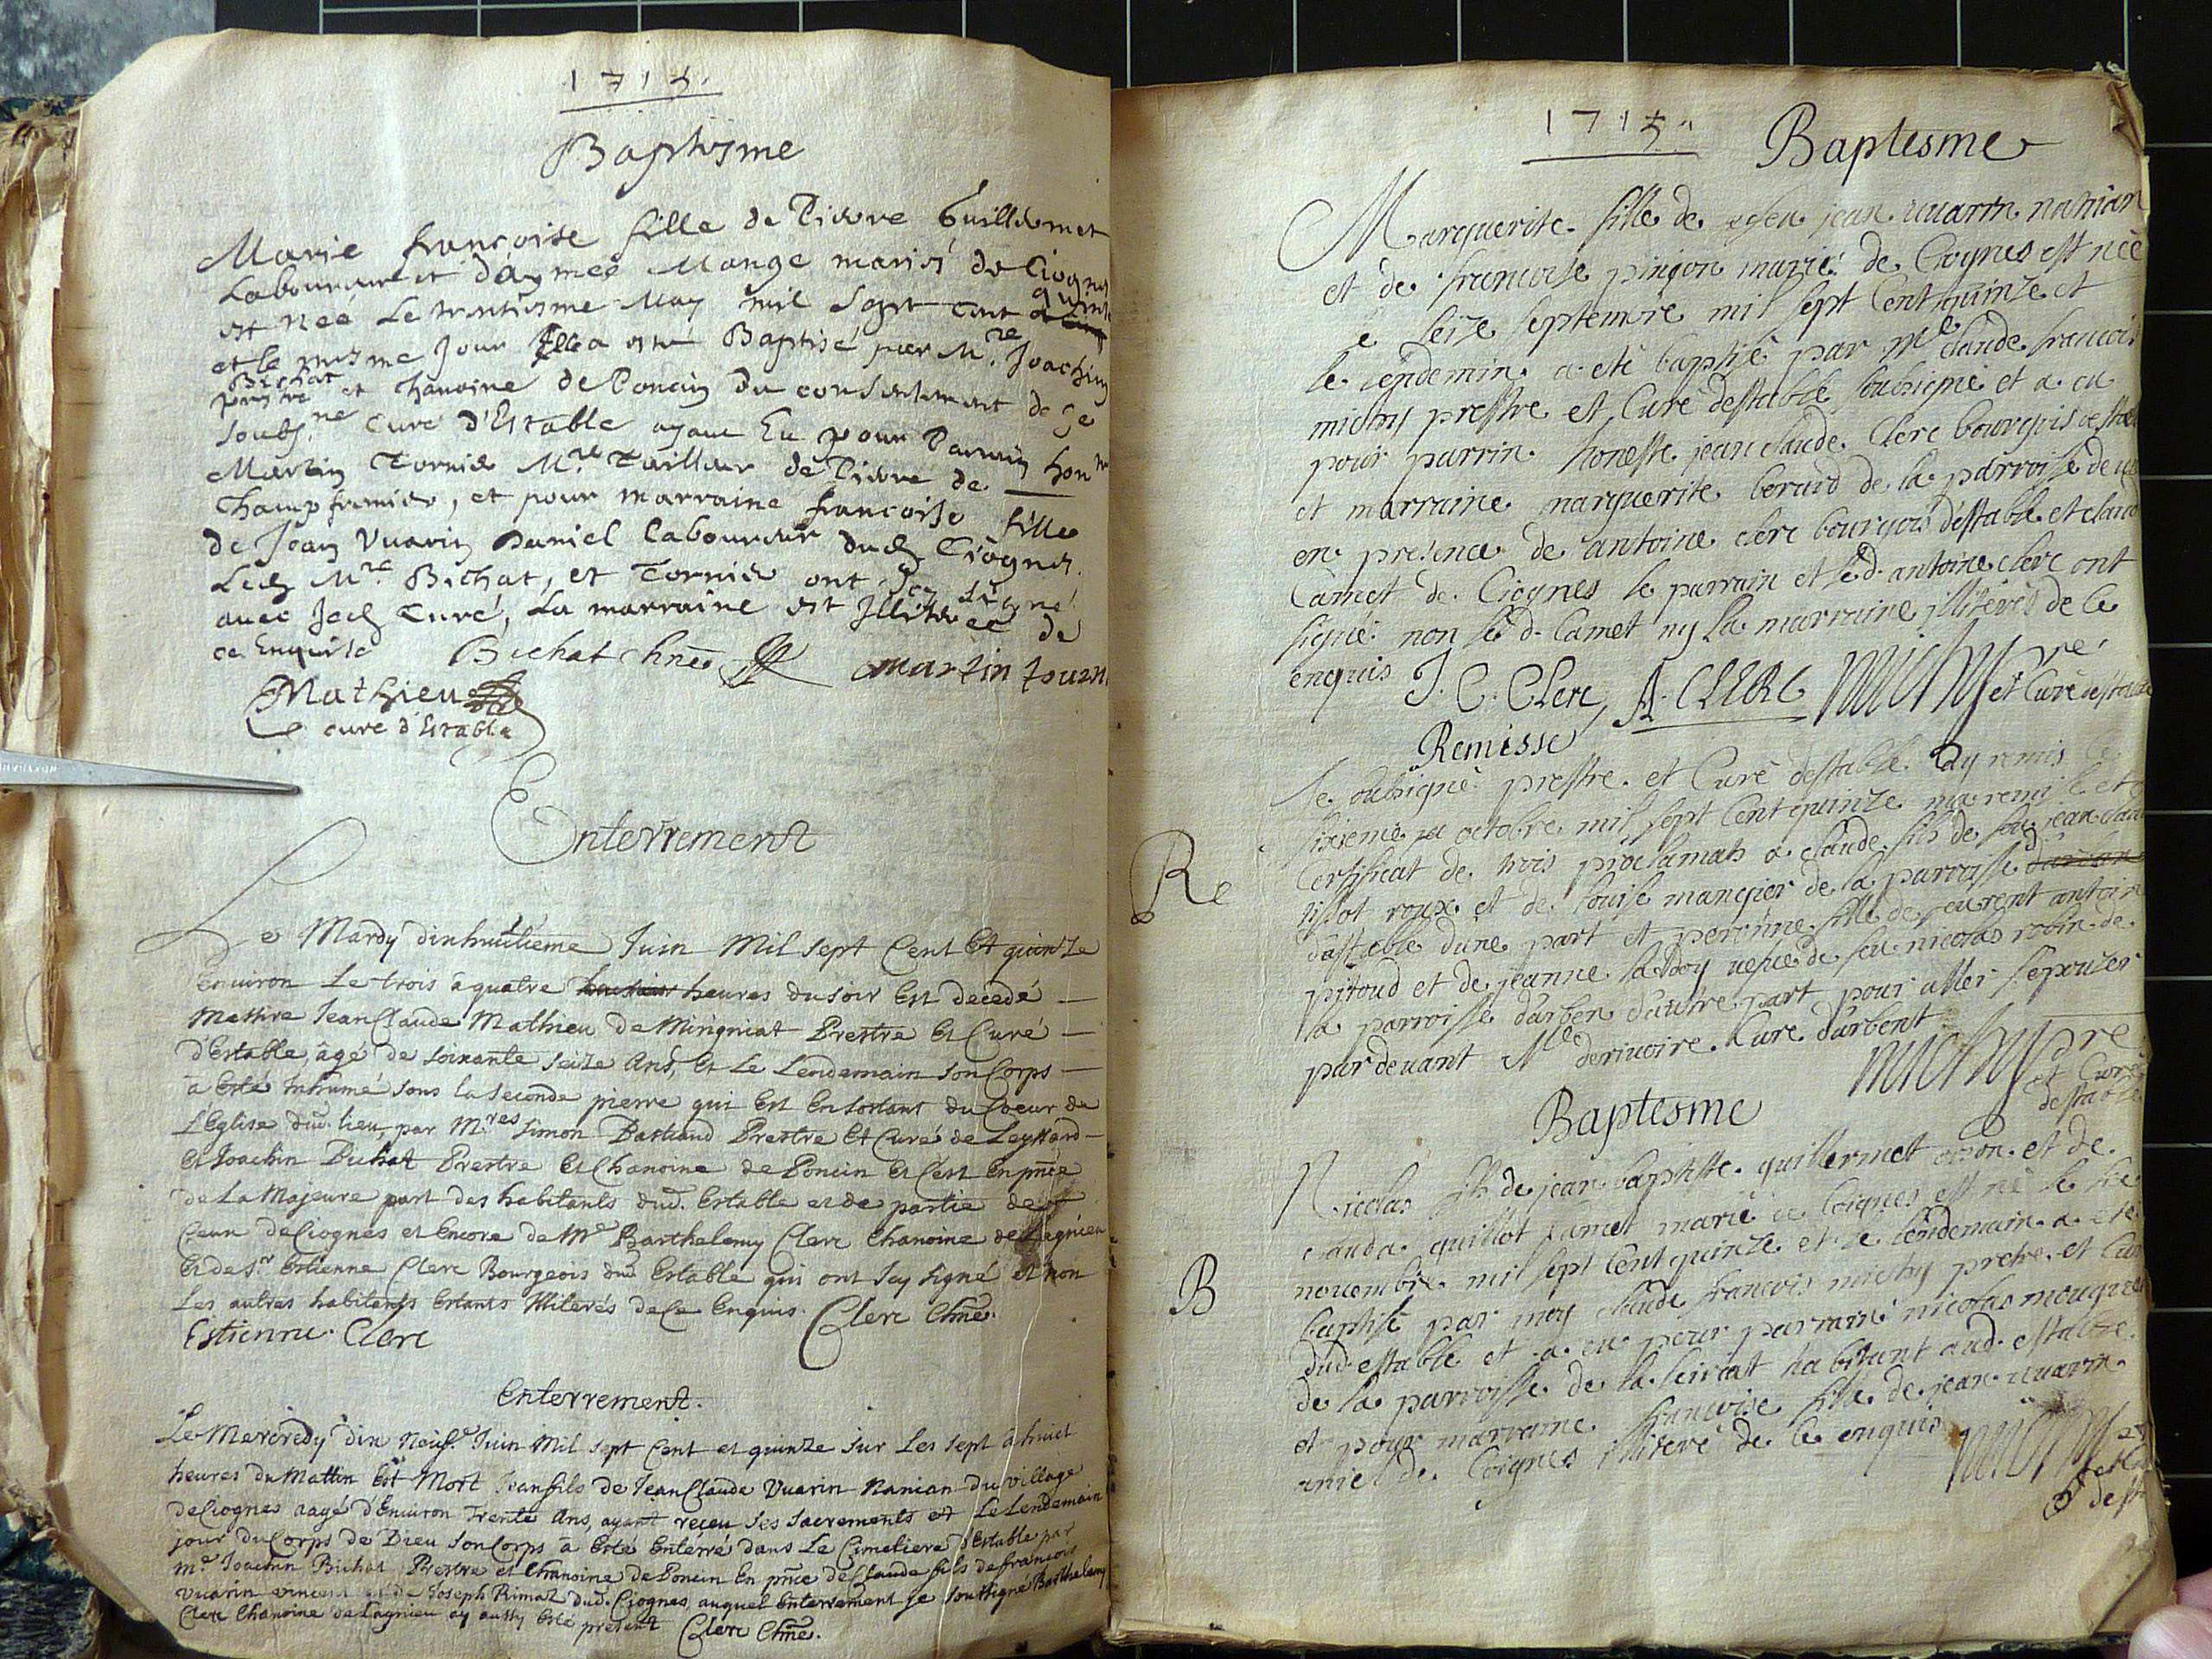 1715.
Baptisme
Marie françoise fille de Pierre Guillermet
Laboureur et d'aymeé Mange mariés de Ciognes
est neé Le trentiesme May mil sept cent quinze
et le mesme Jour Elle a esté Baptisé par M.re Joachim
Bichat
prestre et Chanoine de Poncin du consentement de Je
soubs.né Curé d'Estable ayant Eu pour Parrain hon.
Martin Tornier M.re Tailleur de Pierre de
Champfromier, et pour marraine françoise fille
de Jean Vuarin Daniel Laboureur dud Ciognes.
Led M.re Bichat, et Tornier ont Icy signé
avec Jed Curé, La marraine est Illiterée de
ce Enquise Bichat chne martin tourn
Mathieu
curé d'Estable
Enterrement
Le Mardy dixhuitieme Juin Mil sept Cent et quinze
Environ Le trois a quatre heures du soir Est decedé
Messire Jean Claude Mathieu de Mirigniat Prestre Et Curé
d'Estable âgé de soixante seize Ans, Et Le Lendemain son Corps
a Esté Inhumé sous la seconde pierre qui Est En sortant du Coeur de
L'Eglise dud. lieu, par M.res Simon Bastiand Prestre Et Curé de Leyssard
Et Joachin Bichat Prestre Et Chanoine de Poncin Et C'est En pnce
de La Majeure part des habitants dud. Estable et de partie de
Ceux de Ciognes et Encore de Mre Barthelemy Clerc Chanoine de Lagnieu
Et de Sr Estienne Clerc Bourgeois dud Estable qui ont Icy signé et non
Les autres habitants Estants Illiterés de Ce Enquis. Clerc Chne.
Estienne Clerc
Enterrement.
Le Mercredy dix Neuf.e Juin Mil sept Cent et quinze sur Les sept à huict
heures du Mattin Est Mort Jean fils de Jean Claude Vuarin Nanian du village
de Ciognes aagé d'Environ Trente Ans, ayant reçeu ses sacrements et Le Lendemain
jour du Corps de Dieu son Corps à Esté Enterré dans Le Cimetiere d'Estable par
m.e Joachin Bichat Prestre et Chanoine de Poncin En pnce de Claude fils de françois
Vuarin vincent et de Joseph Rimaz dud. Ciognes, auquel Enterrement je soussigné Barthelemy
Clerc Chanoine de Lagnieu ay aussy Esté present Clerc Chne.
1715. Baptesme
Marguerite fille de feu jean vuarin nanian
et de francoise pingon mariés de Ciognes est néé
le seize septembre mil sept Cent quinze et
le lendemin a eté baptisé par Me claude francois
michy prestre et Curé destable soubsigné et a eu
pour parrin honeste jean claude Clerc bourgois destable
et marraine marguerite berard de la parroisse de
en presence de antoine clerc bourgois destable et claude
Camet de Ciognes le parrain et led. antoine clerc ont
signé non led. Camet ny la marraine illiterés de ce
enquis J. C. Clerc, A. CLERC michy pre
et Curé destable
Remisse
Je soubsigné prestre et Curé destable ay remis le
sixieme octobre mil sept Cent quinze ma remise et
Re
Certificat de trois proclamats a claude fils de feu jean claude
tissot roux et de louise mangier de la parroisse
dastable dune part et perenne fille de laurent antoine
pitoud et de jeanne savoy vefve de feu nicolas robin de
la parroisse darben dautre part pour aller sepouser
par devant Mre derivoire Curé darbent michy pre
et Curé
destable
Baptesme
Nicolas fils de jean baptiste guillermet et de
clauda guillot Camet mariés de Ciognes est né le
novembre mil sept Cent quinze et le lendemain a eté
B
baptisé par moy claude francois michy pretre et Curé
dud. estable et a eu pour parrain nicolas
de la parroisse de habitant aud. estable
et pour marraine francoise fille de jean vuarin
de Ciognes illiteré de ce enquis michy